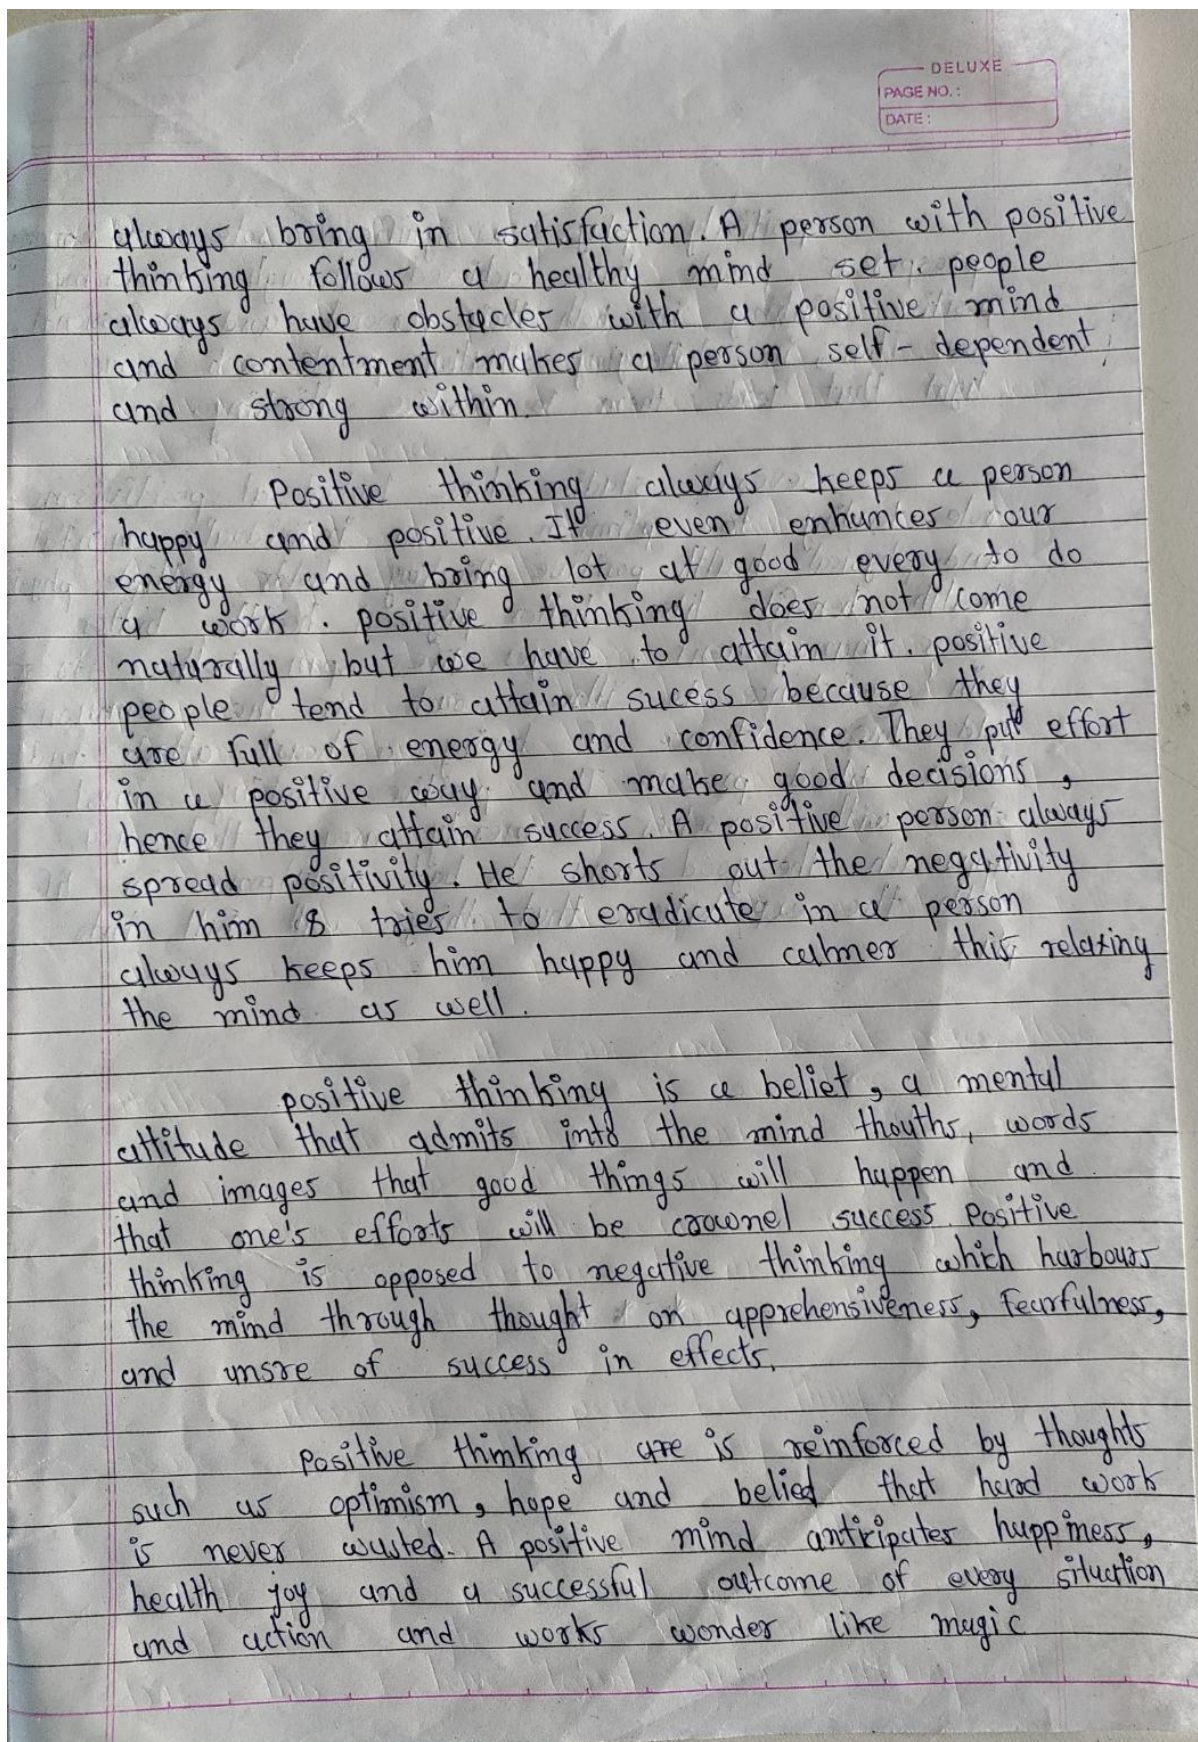 DELUXE
PAGE NO.:
DATE:
always bring in satisfaction. A person with positive
thinking follows a healthy mind set. people
always have obstacles with a positive mind
and contentment makes a person self-dependent
and strong within.
Positive thinking always keeps a person
happy and positive. It even enhances our
energy and bring lot at good every to do
a work. positive thinking does not come
naturally but we have to attain it. positive
people tend to attain sucess because they
are full of energy and confidence. They put effort
in a positive way and make good decisions,
hence they attain success. A positive person always
spread positivity. He shorts out the negativity
in him & tries to eradicate in a person
always keeps him happy and calmer this relaxing
the mind as well.
positive thinking is a beliet, a mental
attitude that admits into the mind thouths, words
and images that good things will happen and
that one's efforts will be crownel success. Positive
thinking is opposed to negative thinking which harbours
the mind through thought on apprehensiveness, fearfulness,
and unsre of success in effects.
Positive thinking are is reinforced by thoughts
such as optimism, hope and belied that hard work
is never wasted. A positive mind anticipates happiness,
health joy and a successful outcome of every situation
and action and works wonder like magic